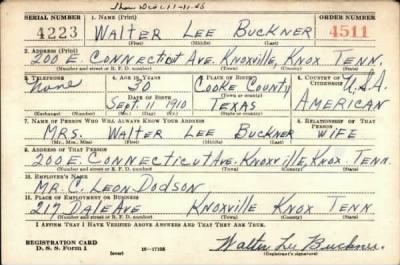 SERIAL NUMBER 1. NAME (Print) ORDER NUMBER
4223 WALTER LEE BUCKNER 4511
(First) (Middle) (Last)
2. ADDRESS (Print)
200 E. CONNECTICUT AVE. KNOXVILLE, KNOX TENN.
(Number and street or R. F. D. number) (Town) (County) (State)
3. TELEPHONE 4. AGE IN YEARS 5. PLACE OF BIRTH 6. COUNTRY OF CITIZENSHIP
None 30 COOKE COUNTY U.S.A.
DATE OF BIRTH (Town or county)
SEPT. 11 1910 TEXAS AMERICAN
(Exchange) (Number) (Mo.) (Day) (Yr.) (State or country)
7. NAME OF PERSON WHO WILL ALWAYS KNOW YOUR ADDRESS 8. RELATIONSHIP OF THAT PERSON
MRS. WALTER LEE BUCKNER WIFE
(Mr., Mrs., Miss) (First) (Middle) (Last)
9. ADDRESS OF THAT PERSON
200 E. CONNECTICUT AVE. KNOXVILLE, KNOX TENN.
(Number and street or R. F. D. number) (Town) (County) (State)
10. EMPLOYER'S NAME
MR. C. LEON DODSON
11. PLACE OF EMPLOYMENT OR BUSINESS
217 DALE AVE KNOXVILLE KNOX TENN.
(Number and street or R. F. D. number) (Town) (County) (State)
I AFFIRM THAT I HAVE VERIFIED ABOVE ANSWERS AND THAT THEY ARE TRUE.
REGISTRATION CARD
D. S. S. Form 1 (over) 16—17105 Walter Lee Buckner
(Registrant's signature)